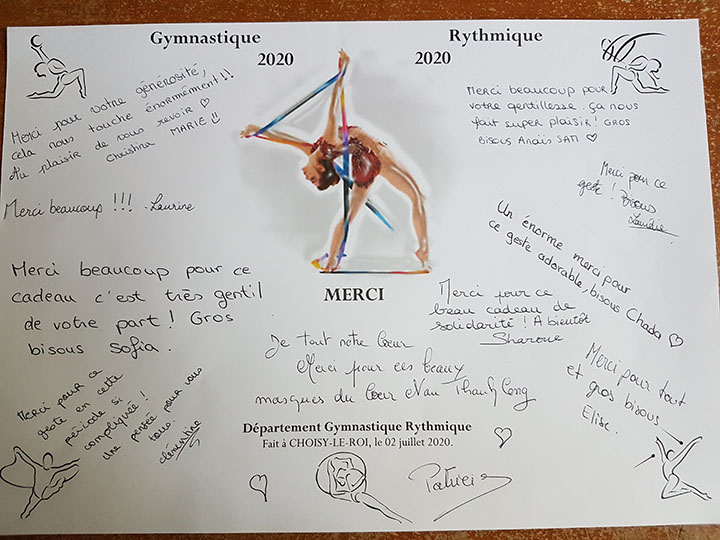 Gymnastique
Rythmique
2020
2020
Merci pour votre générosité,
cela nous touche énormément !!
Au plaisir de vous revoir ♡
Christina MARIE !!
Merci beaucoup pour
votre gentillesse. ça nous
fait super plaisir ! GROS
Bisous Anaïs SAM ♡
Merci beaucoup !!! - Laurine
Merci pour ce
geste ! Bisous
Un énorme merci pour
ce geste adorable, bisous Chada ♡
Merci beaucoup pour ce
cadeau c'est très gentil
de votre part ! Gros
bisous Sofia.
MERCI
Merci pour ce
beau cadeau de
solidarité ! A bientôt
Je tout notre Cœur
Merci pour ces beaux
masques du Cœur Nau Thanh Cong
Merci pour tout
et gros bisous
Elise.
Merci pour ce
geste en cette
période si
compliquée !
Une pensée pour vous
tous.
Clémentine
Département Gymnastique Rythmique
Fait à CHOISY-LE-ROI, le 02 juillet 2020.
Patricia